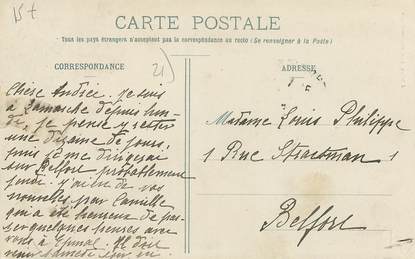 15+
CARTE POSTALE
Tous les pays étrangers n'acceptent pas la correspondance au recto (Se renseigner à la Poste)
CORRESPONDANCE
21)
ADRESSE
Chère Andrée. Je suis
à Lamarche depuis lun-
di, je pense y rester
une dizaine de jours,
puis je me dirigerai
sur Belfort probablement
jeudi. J'ai eu de vos
nouvelles par Camille
qui a été heureux de pas-
ser quelques heures avec
vous à Epinal. Il doit
Madame Louis Philippe
1 Rue Stractman 1
Belfort